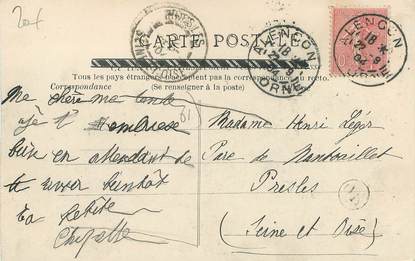 20f
CARTE POSTALE
Tous les pays étrangers n'acceptent pas la correspondance au recto.
Correspondance
(Se renseigner à la poste)
ALENÇON
ORNE
ALENÇON
ORNE
Ma chère ma tante
je t'embrasse
bien en attendant de
te revoir bientôt
ta petite
81
Madame Henri Léger
Parc de
Presles
(Seine et Oise)